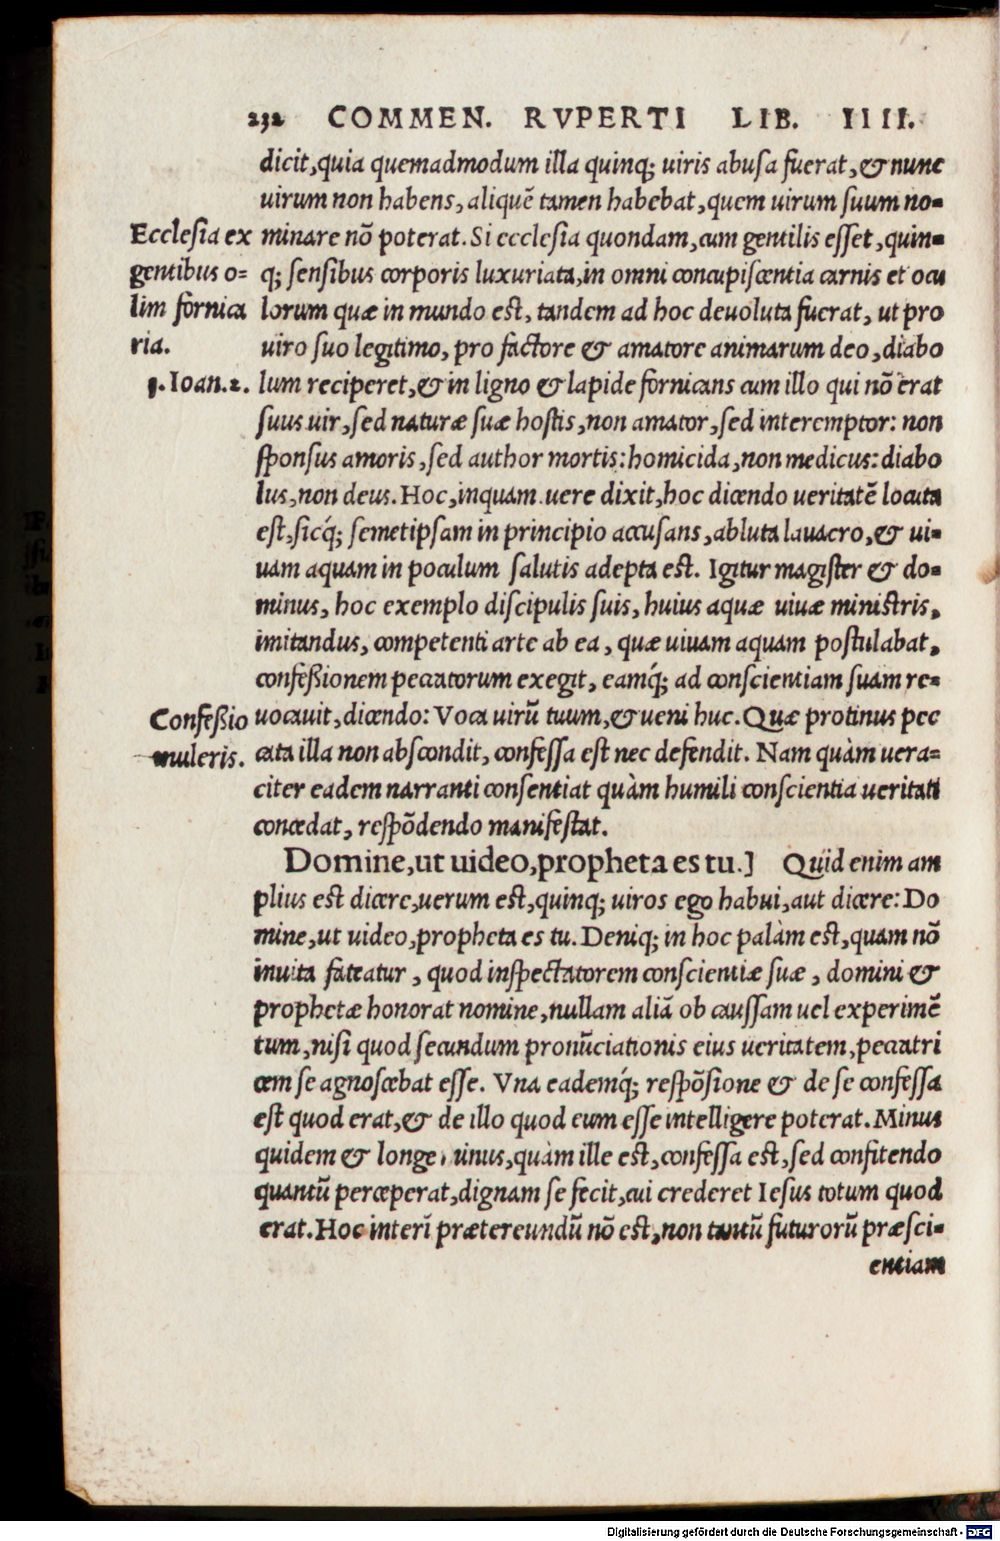 232 COMMEN. RVPERTI LIB. IIII.
dicit,quia quemadmodum illa quinq; uiris abusa fuerat,& nunc
uirum non habens, aliquē tamen habebat,quem uirum suum no-
Ecclesia ex
gentibus o-
lim fornica
ria.
minare nō poterat. Si ecclesia quondam,cum gentilis esset,quin-
q; sensibus corporis luxuriata,in omni concupiscentia carnis et ocu
lorum quæ in mundo est, tandem ad hoc deuoluta fuerat, ut pro
uiro suo legitimo, pro factore & amatore animarum deo,diabo
1. Ioan.2.
lum reciperet,& in ligno & lapide fornicans cum illo qui nō erat
suus uir,sed naturæ suæ hostis,non amator,sed interemptor: non
sponsus amoris,sed author mortis:homicida,non medicus:diabo
lus,non deus. Hoc,inquam uere dixit,hoc dicendo ueritatē locuta
est,sicq́; semetipsam in principio accusans,abluta lauacro,& ui-
uam aquam in poculum salutis adepta est. Igitur magister & do-
minus, hoc exemplo discipulis suis, huius aquæ uiuæ ministris,
imitandus, competenti arte ab ea, quæ uiuam aquam postulabat,
confeßionem peccatorum exegit, eamq́; ad conscientiam suam re-
Confeßio
mulieris.
uocauit,dicendo: Voca uirū tuum,& ueni huc. Quæ protinus pec
cata illa non abscondit, confessa est nec defendit. Nam quàm uera-
citer eadem narranti consentiat quàm humili conscientia ueritati
concedat, respōdendo manifestat.
Domine,ut uideo,propheta es tu.] Quid enim am
plius est dicere,uerum est,quinq; uiros ego habui,aut dicere: Do
mine,ut uideo,propheta es tu. Deniq; in hoc palàm est,quam nō
inuita fateatur, quod inspectatorem conscientiæ suæ, domini &
prophetæ honorat nomine,nullam aliā ob caussam uel experimē
tum,nisi quod secundum pronūciationis eius ueritatem,peccatri
cem se agnoscebat esse. Vna eademq́; respōsione & de se confessa
est quod erat,& de illo quod eum esse intelligere poterat. Minus
quidem & longe minus,quàm ille est,confessa est,sed confitendo
quantū perceperat,dignam se fecit,cui crederet Iesus totum quod
erat. Hoc interī prætereundū nō est,non tantū futurorū præsci-
entiam
Digitalisierung gefördert durch die Deutsche Forschungsgemeinschaft - DFG